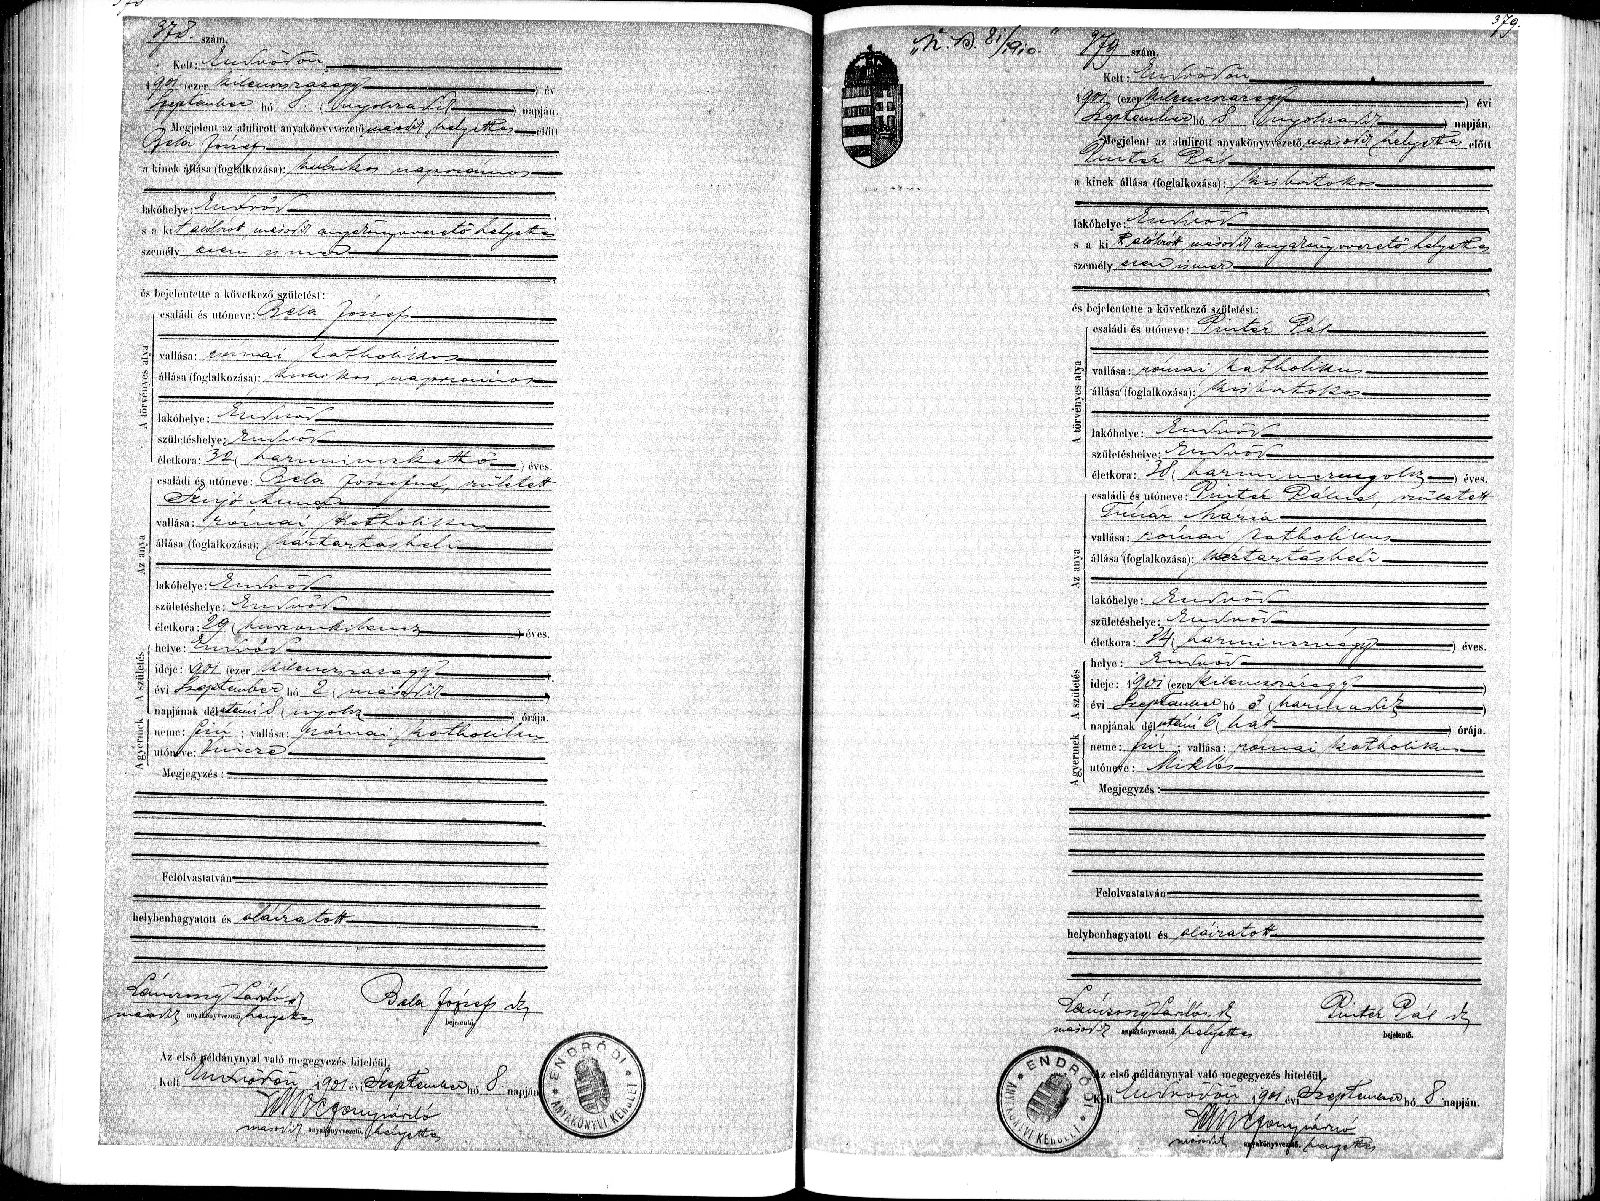 378
378. szám.
Kelt: Endrődön
1901 (ezer kilencszázegy) év
Szeptember hó 8. (nyolczadik) napján.
Megjelent az alulirott anyakönyvvezető második helyettes előtt
Bela József
a kinek állása (foglalkozása): kubikos napszámos
lakóhelye: Endrőd
s a kit alólirott második anyakönyvvezető helyettes
személyesen ismer
és bejelentette a következő születést:
A törvényes atya
családi és utóneve: Bela József
vallása: római katholikus
állása (foglalkozása): kubikos napszámos
lakóhelye: Endrőd
születéshelye: Endrőd
életkora: 32 (harminczkettő) éves.
Az anya
családi és utóneve: Bela Józsefné, született
vallása: római katholikus
állása (foglalkozása): háztartásbeli
lakóhelye: Endrőd
születéshelye: Endrőd
életkora: 29 (huszonkilencz) éves.
A születés
helye: Endrőd
ideje: 1901 (ezer kilenczszázegy)
évi Szeptember hó 2 (második)
napjának délutáni 8 (nyolcz) órája.
A gyermek
neme: fiú; vallása: római katholikus
utóneve: Vincze
Megjegyzés:
Felolvastatván
helybenhagyatott és aláiratott
László
Bela József
második anyakönyvvezető helyettes
bejelentő.
Az első példánynyal való megegyezés hiteléül.
Kelt Endrődön 1901 évi Szeptember hó 8 napján
második anyakönyvvezető helyettes
ENDRŐDI ANYAKÖNYVI KERÜLET
379.
81/1910.
379 szám.
Kelt: Endrődön
1901 (ezer kilenczszázegy) évi
Szeptember hó 8 (nyolczadik) napján.
Megjelent az alulirott anyakönyvvezető második helyettes előtt
Pintér Pál
a kinek állása (foglalkozása): kisbirtokos
lakóhelye: Endrőd
s a kit alólirott második anyakönyvvezető helyettes
személyesen ismer
és bejelentette a következő születést:
A törvényes atya
családi és utóneve: Pintér Pál
vallása: római katholikus
állása (foglalkozása): kisbirtokos
lakóhelye: Endrőd
születéshelye: Endrőd
életkora: 38 (harmincznyolcz) éves.
Az anya
családi és utóneve: Pintér Pálné, született
Tímár Mária
vallása: római katholikus
állása (foglalkozása): háztartásbeli
lakóhelye: Endrőd
születéshelye: Endrőd
életkora: 34 (harmincznégy) éves.
A születés
helye: Endrőd
ideje: 1901 (ezer kilenczszázegy)
évi Szeptember hó 3 (harmadik)
napjának délutáni 6 (hat) órája.
A gyermek
neme: fiú; vallása: római katholikus
utóneve: Miklós
Megjegyzés:
Felolvastatván
helybenhagyatott és aláiratott
Pintér Pál
második anyakönyvvezető. helyettes
bejelentő.
Az első példánynyal való megegyezés hiteléül.
Kelt Endrődön 1901 évi Szeptember hó 8 napján.
második anyakönyvvezető. helyettes
ENDRŐDI ANYAKÖNYVI KERÜLET